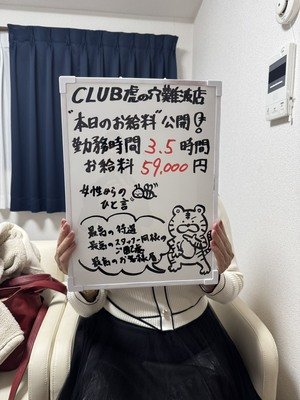 CLUB虎の穴難波店
"本日のお給料"公開!
勤務時間 3.5 時間
お給料 59,000 円
女性からの
ひと言
最高の待遇
最高のスタッフ一同様の
ご配慮
最高のお客様層